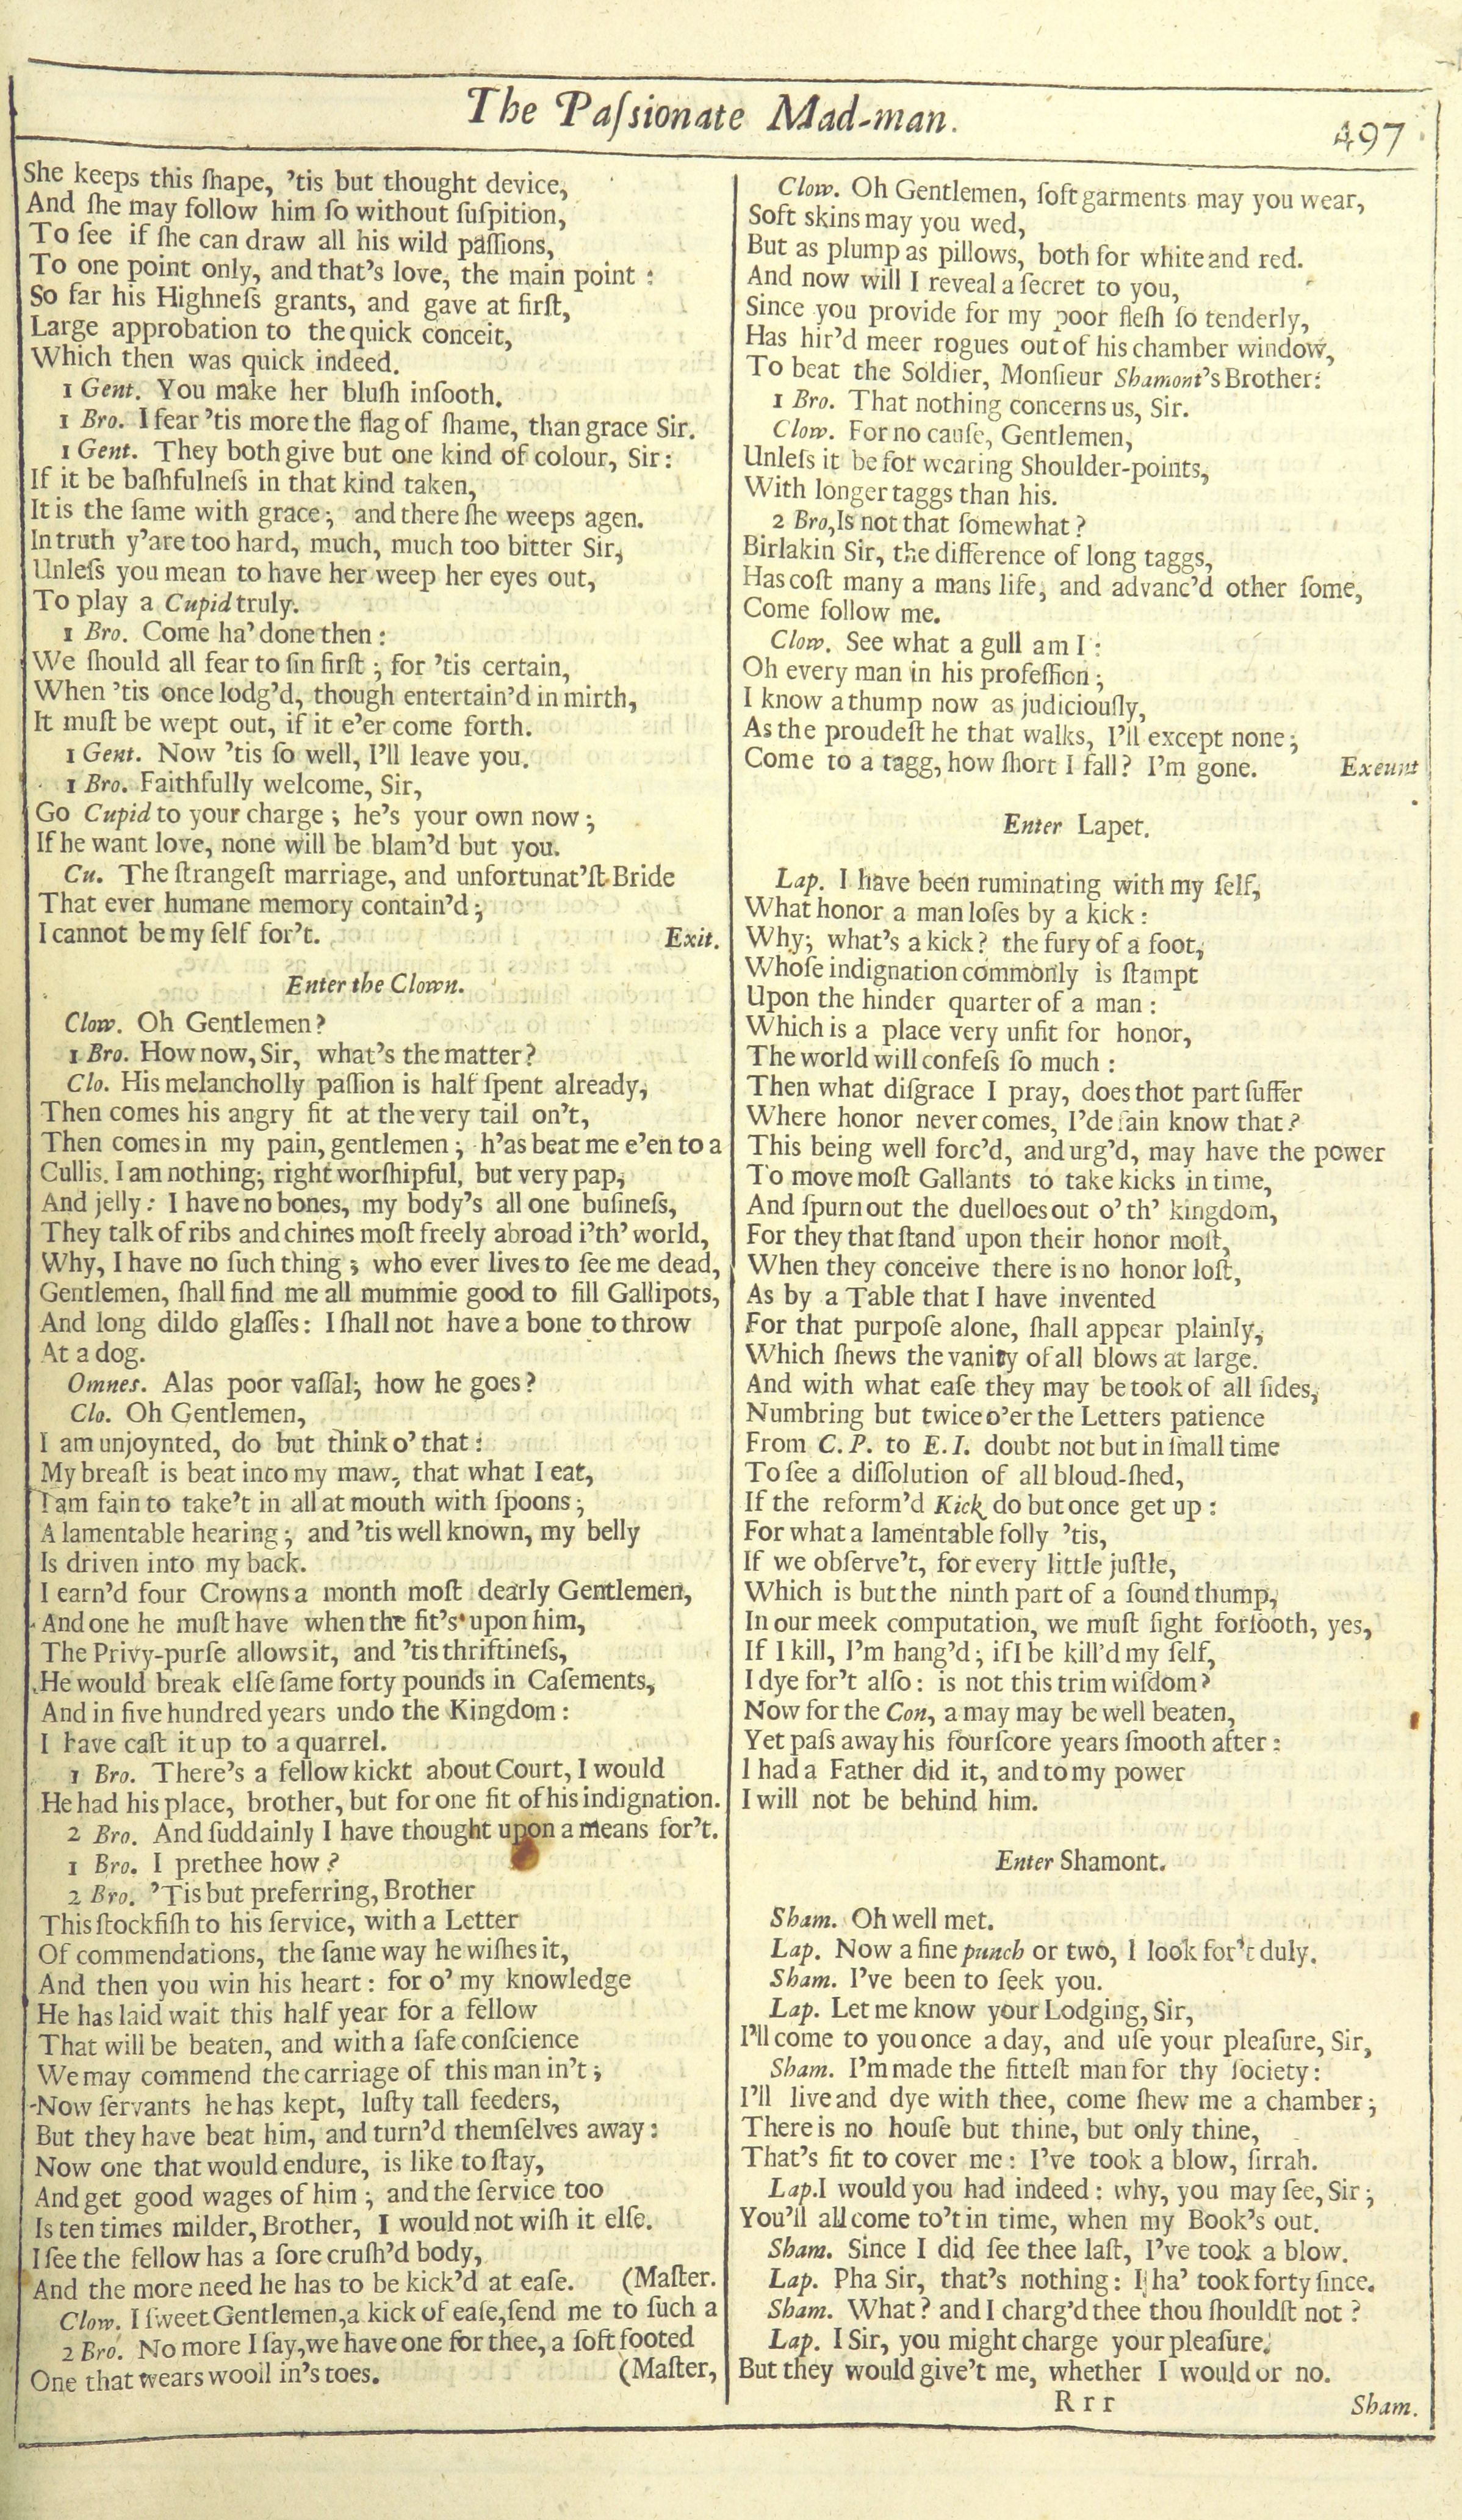 The Paſsionate Mad-man.
497
She keeps this ſhape, 'tis but thought device,
And ſhe may follow him ſo without ſuſpition,
To ſee if ſhe can draw all his wild paſſions,
To one point only, and that's love, the main point :
So far his Highneſs grants, and gave at firſt,
Large approbation to the quick conceit,
Which then was quick indeed.
1 Gent. You make her bluſh inſooth.
1 Bro. I fear 'tis more the flag of ſhame, than grace Sir.
1 Gent. They both give but one kind of colour, Sir:
If it be baſhfulneſs in that kind taken,
It is the ſame with grace; and there ſhe weeps agen.
In truth y'are too hard, much, much too bitter Sir,
Unleſs you mean to have her weep her eyes out,
To play a Cupid truly.
1 Bro. Come ha' done then :
We ſhould all fear to ſin firſt ; for 'tis certain,
When 'tis once lodg'd, though entertain'd in mirth,
It muſt be wept out, if it e'er come forth.
1 Gent. Now 'tis ſo well, I'll leave you.
1 Bro. Faithfully welcome, Sir,
Go Cupid to your charge ; he's your own now ;
If he want love, none will be blam'd but you.
Cu. The ſtrangeſt marriage, and unfortunat'ſt Bride
That ever humane memory contain'd ;
I cannot be my ſelf for't. Exit.
Enter the Clown.
Clow. Oh Gentlemen?
1 Bro. How now, Sir, what's the matter?
Clo. His melancholly paſſion is half ſpent already,
Then comes his angry fit at the very tail on't,
Then comes in my pain, gentlemen ; h'as beat me e'en to a
Cullis. I am nothing; right worſhipful, but very pap,
And jelly: I have no bones, my body's all one buſineſs,
They talk of ribs and chines moſt freely abroad i'th' world,
Why, I have no ſuch thing ; who ever lives to ſee me dead,
Gentlemen, ſhall find me all mummie good to fill Gallipots,
And long dildo glaſſes: I ſhall not have a bone to throw
At a dog.
Omnes. Alas poor vaſſal; how he goes?
Clo. Oh Gentlemen,
I am unjoynted, do but think o' that :
My breaſt is beat into my maw, that what I eat,
I am fain to take't in all at mouth with ſpoons ;
A lamentable hearing ; and 'tis well known, my belly
Is driven into my back.
I earn'd four Crowns a month moſt dearly Gentlemen,
And one he muſt have when the fit's upon him,
The Privy-purſe allows it, and 'tis thriftineſs,
He would break elſe ſame forty pounds in Caſements,
And in five hundred years undo the Kingdom :
I have caſt it up to a quarrel.
1 Bro. There's a fellow kickt about Court, I would
He had his place, brother, but for one fit of his indignation.
2 Bro. And ſuddainly I have thought upon a means for't.
1 Bro. I prethee how?
2 Bro. 'Tis but preferring, Brother
This ſtockfiſh to his ſervice, with a Letter
Of commendations, the ſame way he wiſhes it,
And then you win his heart : for o' my knowledge
He has laid wait this half year for a fellow
That will be beaten, and with a ſafe conſcience
We may commend the carriage of this man in't ;
Now ſervants he has kept, luſty tall feeders,
But they have beat him, and turn'd themſelves away :
Now one that would endure, is like to ſtay,
And get good wages of him ; and the ſervice too
Is ten times milder, Brother, I would not wiſh it elſe.
I ſee the fellow has a ſore cruſh'd body,
And the more need he has to be kick'd at eaſe. (Maſter.
Clow. I ſweet Gentlemen, a kick of eaſe, ſend me to ſuch a
2 Bro. No more I ſay, we have one for thee, a ſoft footed
One that wears wooll in's toes. (Maſter,
Clow. Oh Gentlemen, ſoft garments may you wear,
Soft skins may you wed,
But as plump as pillows, both for white and red.
And now will I reveal a ſecret to you,
Since you provide for my poor fleſh ſo tenderly,
Has hir'd meer rogues out of his chamber window,
To beat the Soldier, Monſieur Shamont's Brother:
1 Bro. That nothing concerns us, Sir.
Clow. For no cauſe, Gentlemen,
Unleſs it be for wearing Shoulder-points,
With longer taggs than his.
2 Bro, Is not that ſomewhat?
Birlakin Sir, the difference of long taggs,
Has coſt many a mans life, and advanc'd other ſome,
Come follow me.
Clow. See what a gull am I :
Oh every man in his profeſſion ;
I know a thump now as judiciouſly,
As the proudeſt he that walks, I'll except none ;
Come to a tagg, how ſhort I fall? I'm gone. Exeunt
Enter Lapet.
Lap. I have been ruminating with my ſelf,
What honor a man loſes by a kick :
Why; what's a kick? the fury of a foot,
Whoſe indignation commonly is ſtampt
Upon the hinder quarter of a man :
Which is a place very unfit for honor,
The world will confeſs ſo much :
Then what diſgrace I pray, does thot part ſuffer
Where honor never comes, I'de fain know that?
This being well forc'd, and urg'd, may have the power
To move moſt Gallants to take kicks in time,
And ſpurn out the duelloes out o' th' kingdom,
For they that ſtand upon their honor moſt,
When they conceive there is no honor loſt,
As by a Table that I have invented
For that purpoſe alone, ſhall appear plainly,
Which ſhews the vanity of all blows at large.
And with what eaſe they may be took of all ſides,
Numbring but twice o'er the Letters patience
From C. P. to E. I. doubt not but in ſmall time
To ſee a diſſolution of all bloud-ſhed,
If the reform'd Kick do but once get up :
For what a lamentable folly 'tis,
If we obſerve't, for every little juſtle,
Which is but the ninth part of a ſound thump,
In our meek computation, we muſt fight forſooth, yes,
If I kill, I'm hang'd ; if I be kill'd my ſelf,
I dye for't alſo: is not this trim wiſdom?
Now for the Con, a may may be well beaten,
Yet paſs away his fourſcore years ſmooth after :
I had a Father did it, and to my power
I will not be behind him.
Enter Shamont.
Sham. Oh well met.
Lap. Now a fine punch or two, I look for't duly.
Sham. I've been to ſeek you.
Lap. Let me know your Lodging, Sir,
I'll come to you once a day, and uſe your pleaſure, Sir,
Sham. I'm made the fitteſt man for thy ſociety:
I'll live and dye with thee, come ſhew me a chamber ;
There is no houſe but thine, but only thine,
That's fit to cover me : I've took a blow, ſirrah.
Lap. I would you had indeed : why, you may ſee, Sir ;
You'll all come to't in time, when my Book's out.
Sham. Since I did ſee thee laſt, I've took a blow.
Lap. Pha Sir, that's nothing: I ha' took forty ſince.
Sham. What? and I charg'd thee thou ſhouldſt not ?
Lap. I Sir, you might charge your pleaſure.
But they would give't me, whether I would or no.
R r r
Sham.